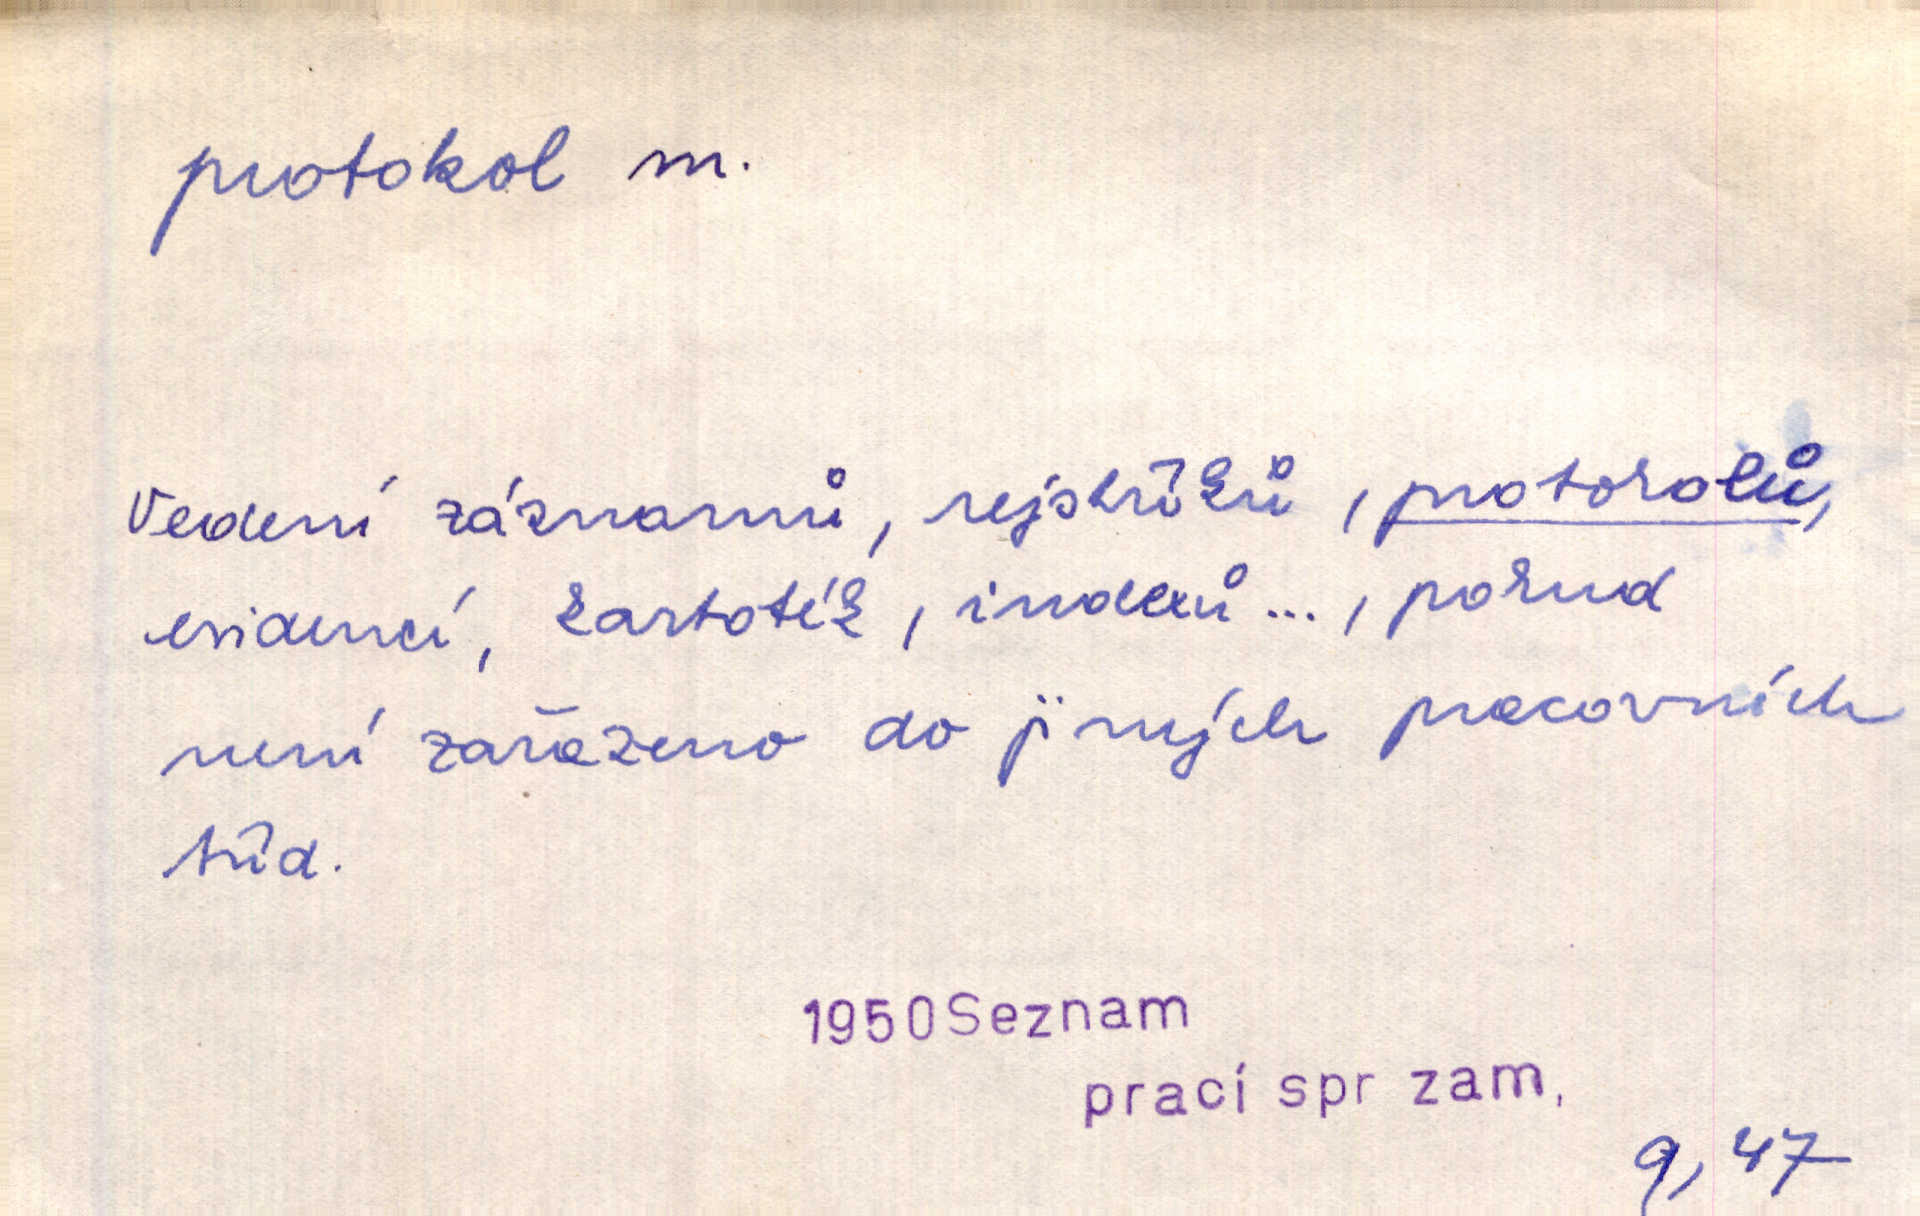 protokol m.
Vedení záznamů, rejstříků, protokolů,
evidencí, kartoték, indexů..., pokud
není zařazeno do jiných pracovních
tříd.
1950 Seznam
prací spr zam,
9,47